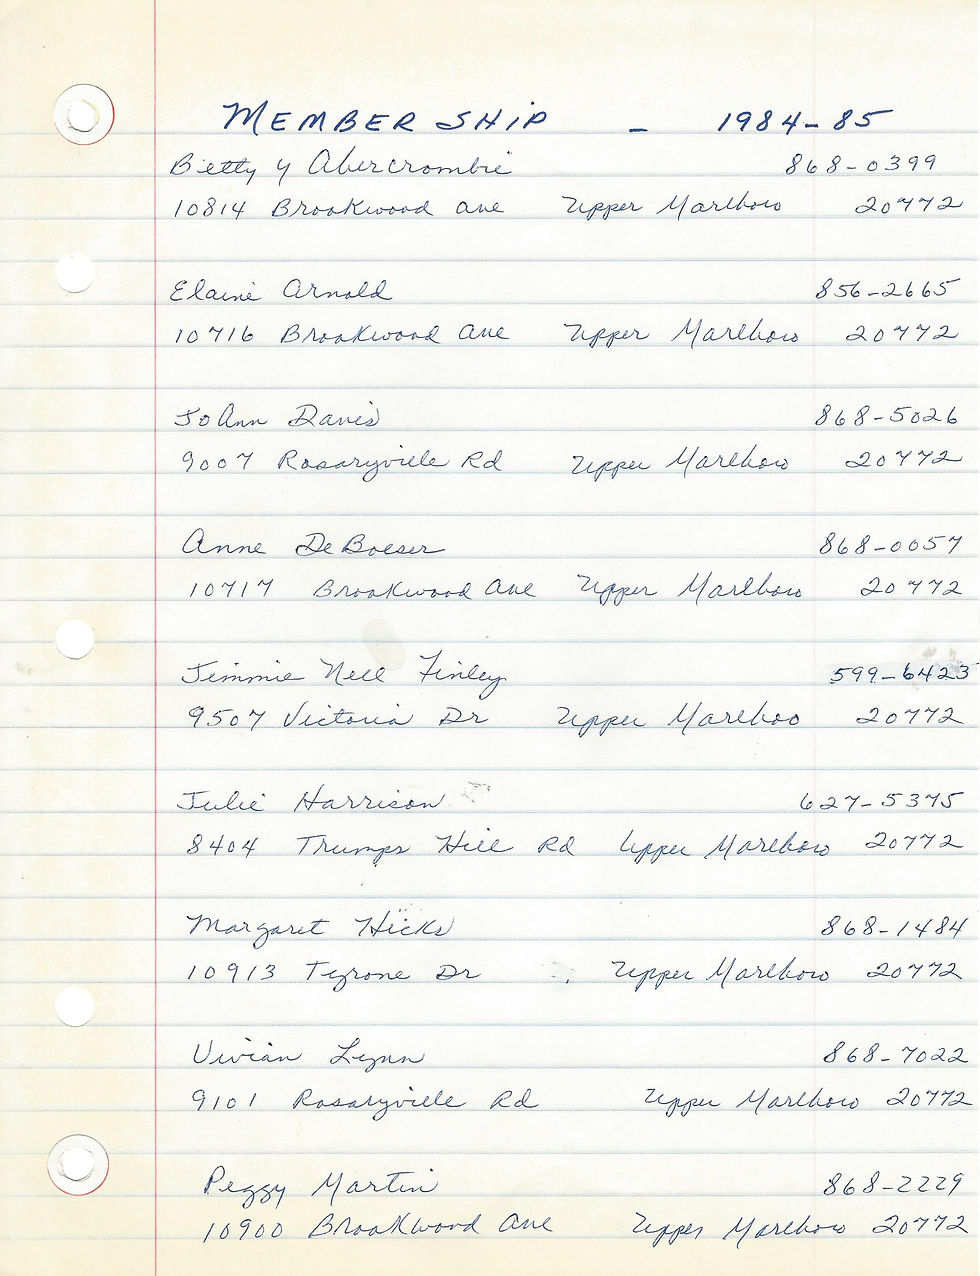 MEMBERSHIP - 1984-85
Betty y Abercrombie 868-0399
10814 Brookwood ave Upper Marlboro 20772
Elaine Arnold 856-2665
10716 Brookwood Ave Upper Marlboro 20772
JoAnn Davis 868-5026
9007 Rosaryville Rd Upper Marlboro 20772
Anne DeBoeser 868-0057
10717 Brookwood Ave Upper Marlboro 20772
Jimmie Nell Finley 599-6423
9507 Victoria Dr Upper Marlboro 20772
Julie Harrison 627-5375
8404 Trumps Hill Rd Upper Marlboro 20772
Margaret Hicks 868-1484
10913 Tyrone Dr Upper Marlboro 20772
Vivian Lynn 868-7022
9101 Rosaryville Rd Upper Marlboro 20772
Peggy Martin 868-2229
10900 Brookwood Ave Upper Marlboro 20772